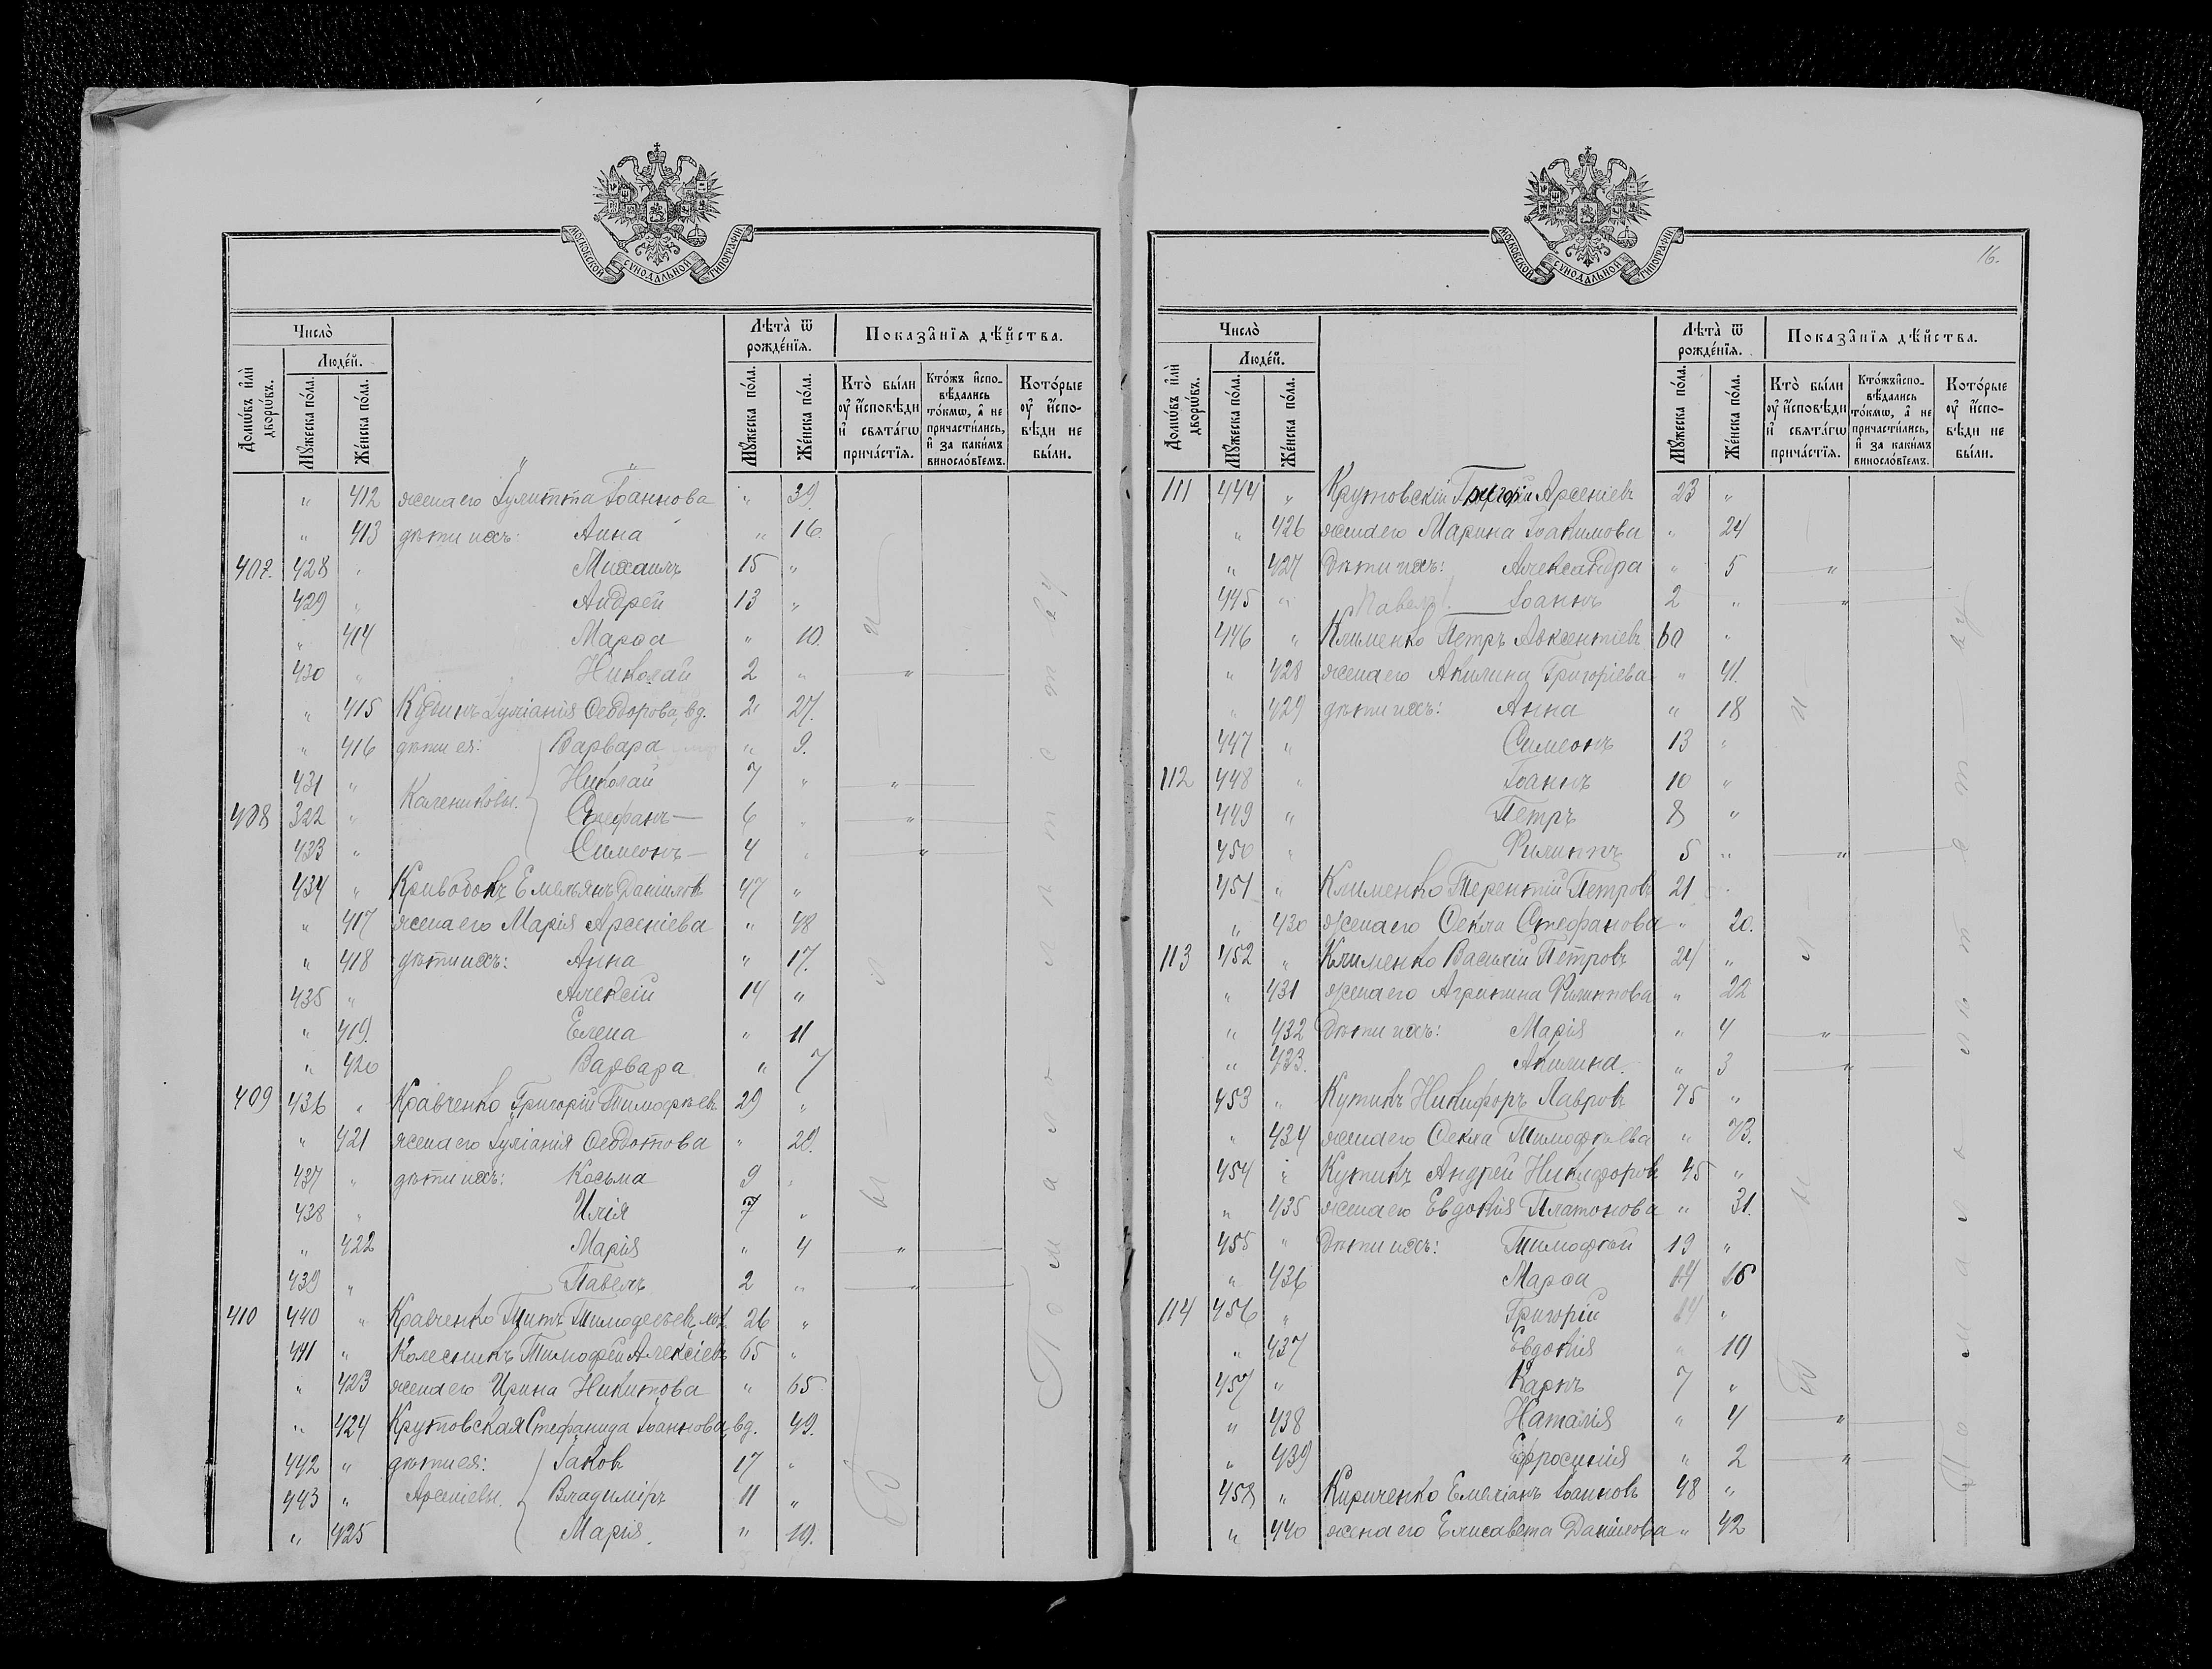 МОСКОВСКОЙ СѴНОДАЛЬНОЙ ТИПОГРАФІИ
Число̀
Людéй.
Домѡ́въ и҆лѝ дворѡ́въ.
Мꙋ́жеска по́ла.
Же́нска по́ла.
Лѣта̀ ѿ рожде́нїя.
Мꙋ́жеска по́ла.
Же́нска по́ла.
Показа̑нїя дѣ́йства.
Кто̀ бы́ли ᲂу҆ и҆́сповѣди и҆ свята́гѡ прича́стїя.
Кто́жъ и҆спо-вѣ́дались то́кмѡ, а҆ не причасти́лись, и҆ за каки́мъ винослові́емъ.
Кото́рые ᲂу҆ и҆́спо-вѣди не бы́ли.
" "
" 412 жена его Іулитта Іоаннова " 39.
" 413 дѣти ихъ: Анна " 16.
407. 428 " Михаилъ 15 "
429 " Андрей 13 "
" 414 Марѳа " 10.
430 " Николай 2 " "
" 415 Іуліанія Ѳеодорова, вд. 27.
" 416 дѣти ея: Варвара " 9.
431 " Николай 7 " "
Калениковы.
408 322 " Стефанъ— 6 " "
433 " Симеонъ— 4 " "
434 " Емельянъ Даніиловъ 47 "
" 417 жена его Марія Арсеніева " 48
" 418 дѣти ихъ: Анна " 17.
435 " Алексій 14 "
" 419. Елена " 11
" 420 Варвара " 7
409 436 " Кравченко Григорій Тимоѳеевъ 29 "
" 421 жена его Іуліанія Ѳеодотова " 29.
437 " дѣти ихъ: Косьма 9 "
438 " Илія 7 "
" 422 Марія " 4 "
439 " Павелъ 2 " "
410 440 " Кравченко Титъ Тимоѳеевъ 26 "
441 " Колесникъ Тимоѳей Алексіевъ 65 "
" 423 жена его Ирина Никитова " 65
" 424 Крутовская Стефанида Іоаннова, вд. 49.
442 " дѣти ея: Іаковъ 17 "
443 " Арсеніевы. Владиміръ 11 "
" 425 Марія. " 10.
МОСКОВСКОЙ СѴНОДАЛЬНОЙ ТИПОГРАФІИ
16.
Число̀
Людéй.
Домѡ́въ и҆лѝ дворѡ́въ.
Мꙋ́жеска по́ла.
Же́нска по́ла.
Лѣта̀ ѿ рожде́нїя.
Мꙋ́жеска по́ла.
Же́нска по́ла.
Показа̑нїя дѣ́йства.
Кто̀ бы́ли ᲂу҆ и҆́сповѣди и҆ свята́гѡ прича́стїя.
Кто́жъ и҆спо-вѣ́дались то́кмѡ, а҆ не причасти́лись, и҆ за каки́мъ винослові́емъ.
Кото́рые ᲂу҆ и҆́спо-вѣди не бы́ли.
111 444 " Крутовскій Григорій Арсеніевъ 23 "
" 426 жена его Марина Іоакимова " 24
" 427 Дѣти ихъ: Александра " 5 "
445 " Павелъ Іоаннъ 2 " "
446 " Клименко Петръ Авксентіевъ 60 "
" 428 жена его Акилина Григоріева " 41.
" 429 дѣти ихъ: Анна " 18
447 " Симеонъ 13 "
112 448 " Іоаннъ 10 "
449 " Петръ 8 "
450 " Филиппъ 5 " "
451 " Клименко Терентій Петровъ 21
" 430 Жена его Ѳекла Стефанова " 20.
113 452 " Клименко Василій Петровъ 24 "
" 431 Жена его Агрипина Филиппова " 22
" 432 Дѣти ихъ: Марія " 4 "
" 433. Акилина. " 3 "
453 " Кутикъ Никифоръ Лавровъ 75 "
" 434 жена его Ѳекла Тимоѳеева " 73.
454 " Кутикъ Андрей Никифоровъ 45 "
" 435 жена его Евдокія Платонова " 31.
455 " Дѣти ихъ: Тимоѳей 19 "
" 436 Марѳа 16
114 456 " Григорій 14 "
" 437 Евдокія " 10
457 " Карпъ 7 "
" 438 Наталія " 4 "
" 439 Ефросинія " 2 "
458 " Кириченко Емеліанъ Іоанновъ 48 "
" 440 жена его Елисавета Даніилова " 42